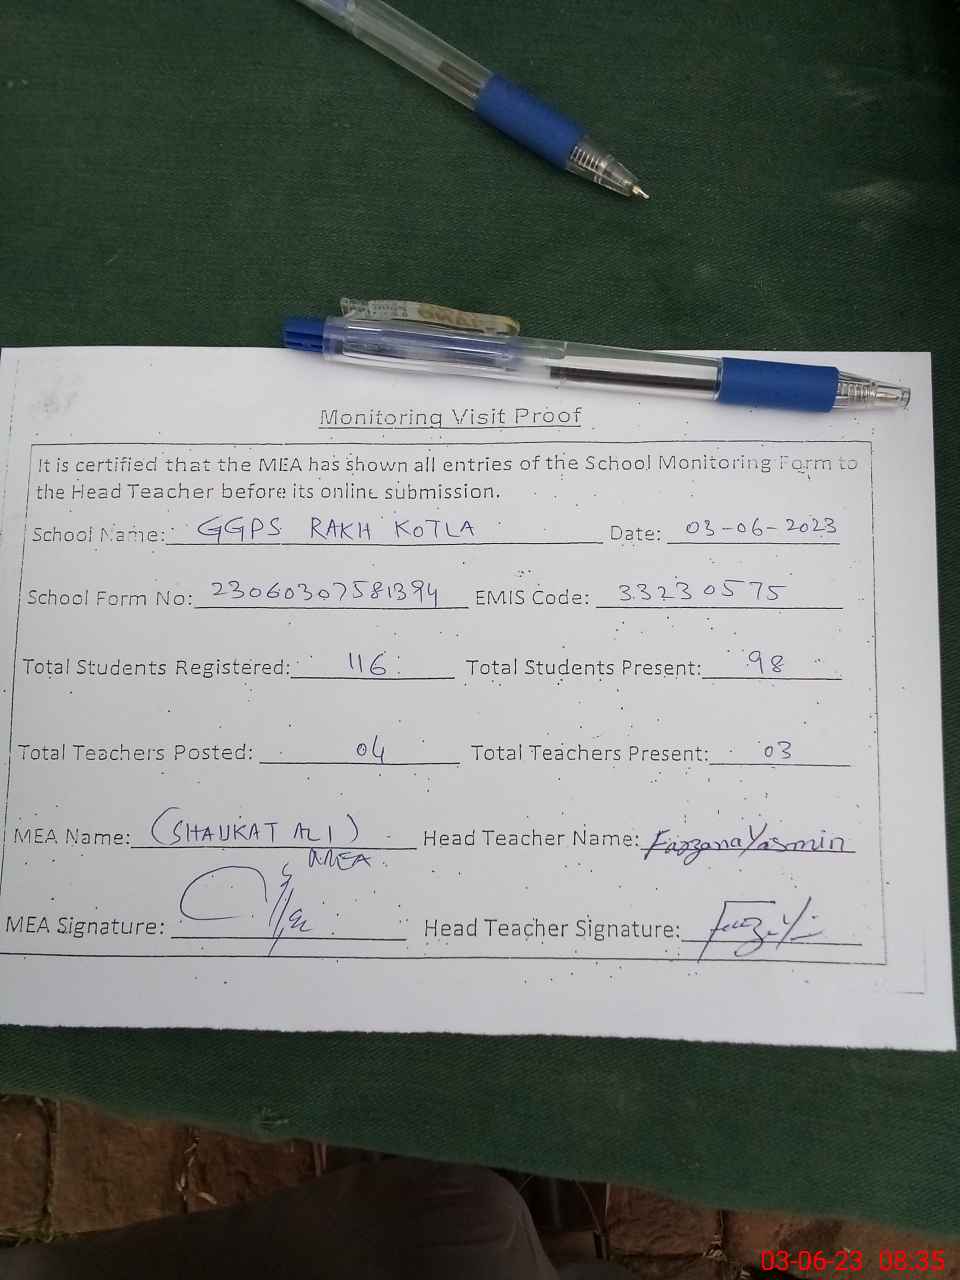 Monitoring Visit Proof
It is certified that the MEA has shown all entries of the School Monitoring Form to
the Head Teacher before its online submission.
School Name: GGPS RAKH KOTLA Date: 03-06-2023
School Form No: 23060307581394 EMIS Code: 33230575
Total Students Registered: 116 Total Students Present: 98
Total Teachers Posted: 04 Total Teachers Present: 03
MEA Name: (SHAUKAT ALI) Head Teacher Name: Farzana Yasmin
MEA
MEA Signature: Head Teacher Signature:
03-06-23 08:35